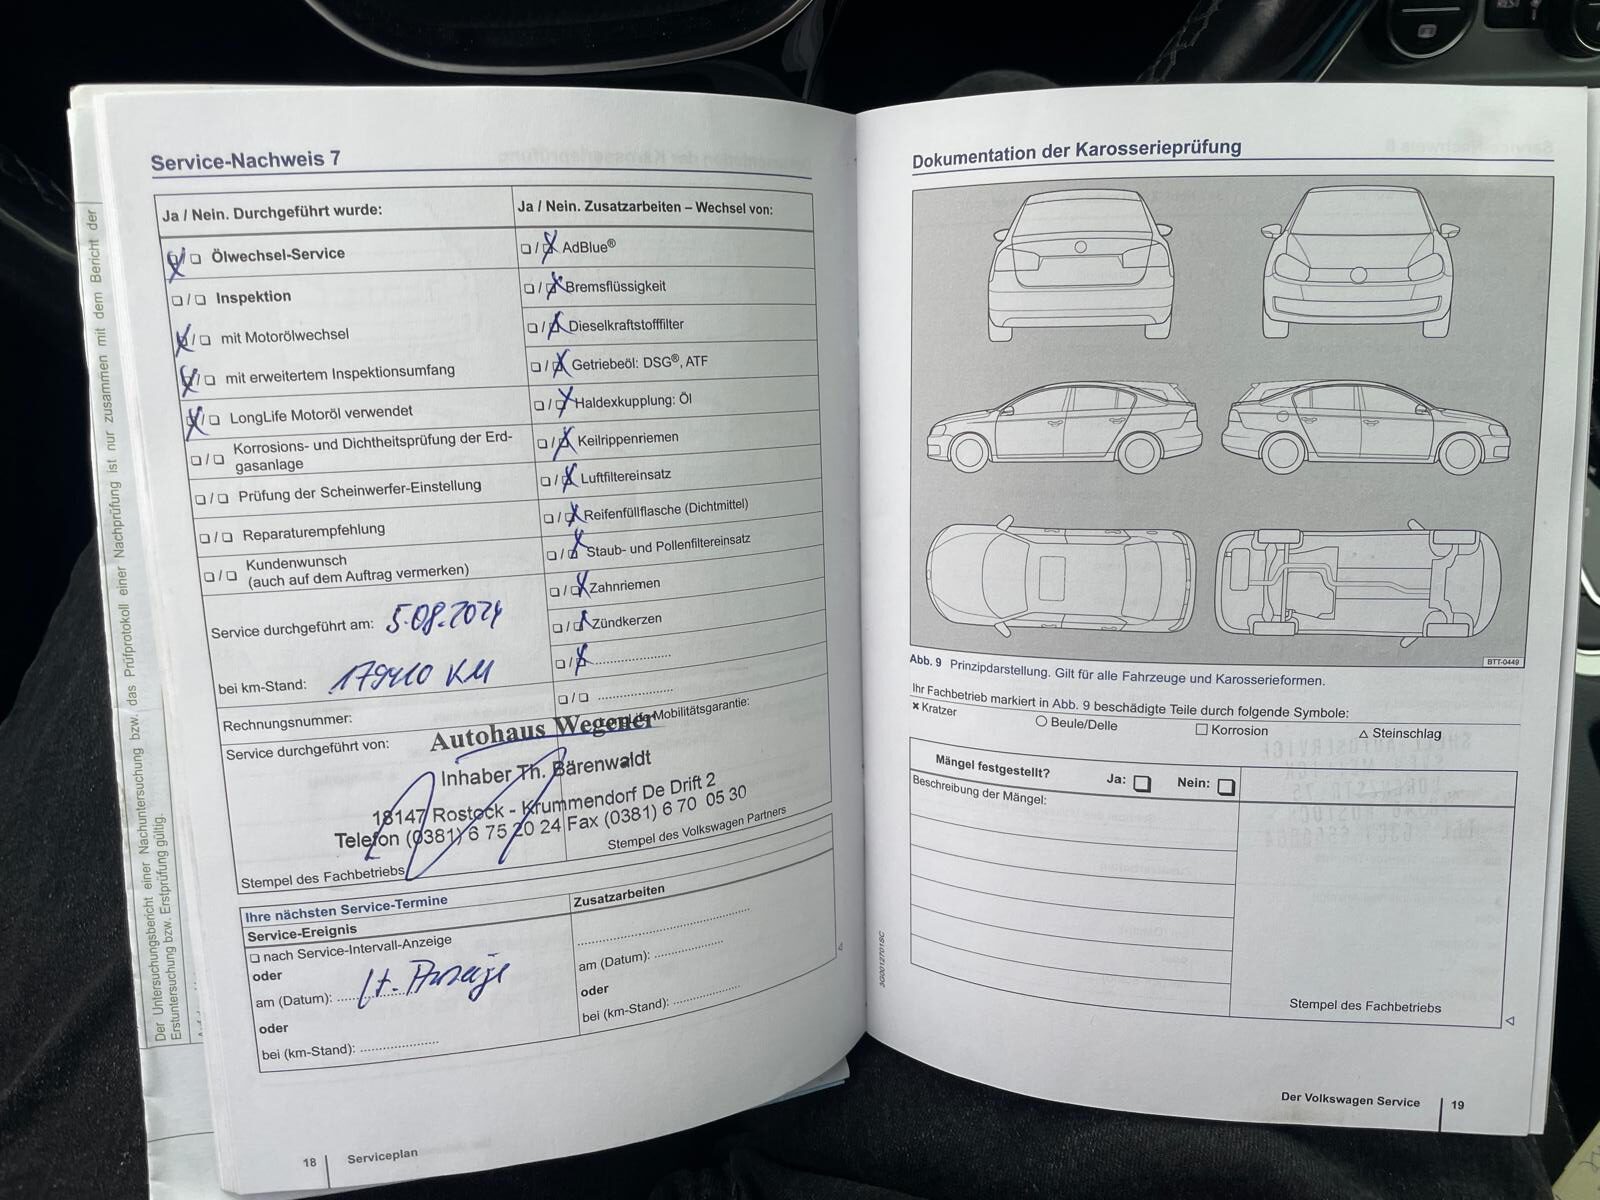 Der Untersuchungsbericht einer Nachuntersuchung bzw. das Prüfprotokoll einer Nachprüfung ist nur zusammen mit dem Bericht der
Erstuntersuchung bzw. Erstprüfung gültig.
Service-Nachweis 7
Ja / Nein. Durchgeführt wurde:
Ölwechsel-Service
Inspektion
mit Motorölwechsel
mit erweitertem Inspektionsumfang
LongLife Motoröl verwendet
Korrosions- und Dichtheitsprüfung der Erd-
gasanlage
Prüfung der Scheinwerfer-Einstellung
Reparaturempfehlung
Kundenwunsch
(auch auf dem Auftrag vermerken)
Service durchgeführt am: 5.08.2024
bei km-Stand: 179410 KM
Rechnungsnummer:
Service durchgeführt von:
Ja / Nein. Zusatzarbeiten – Wechsel von:
AdBlue®
Bremsflüssigkeit
Dieselkraftstofffilter
Getriebeöl: DSG®, ATF
Haldexkupplung: Öl
Keilrippenriemen
Luftfiltereinsatz
Reifenfüllflasche (Dichtmittel)
Staub- und Pollenfiltereinsatz
Zahnriemen
Zündkerzen
Mobilitätsgarantie:
Autohaus Wegener
Inhaber Th. Bärenwaldt
18147 Rostock - Krummendorf De Drift 2
Telefon (0381) 6 75 20 24 Fax (0381) 6 70 05 30
Stempel des Fachbetriebs
Stempel des Volkswagen Partners
Ihre nächsten Service-Termine
Service-Ereignis
nach Service-Intervall-Anzeige
oder
am (Datum): lt. Anzeige
oder
bei (km-Stand):
Zusatzarbeiten
am (Datum):
oder
bei (km-Stand):
18 Serviceplan
Dokumentation der Karosserieprüfung
BTT-0449
Abb. 9 Prinzipdarstellung. Gilt für alle Fahrzeuge und Karosserieformen.
Ihr Fachbetrieb markiert in Abb. 9 beschädigte Teile durch folgende Symbole:
Kratzer Beule/Delle Korrosion Steinschlag
Mängel festgestellt? Ja: Nein:
Beschreibung der Mängel:
Stempel des Fachbetriebs
3G0012701SC
Der Volkswagen Service 19